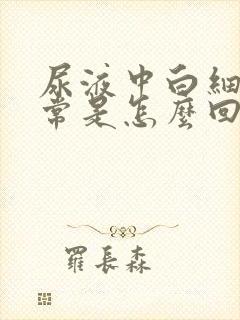 尿液中白細
常是怎麼回
羅長森